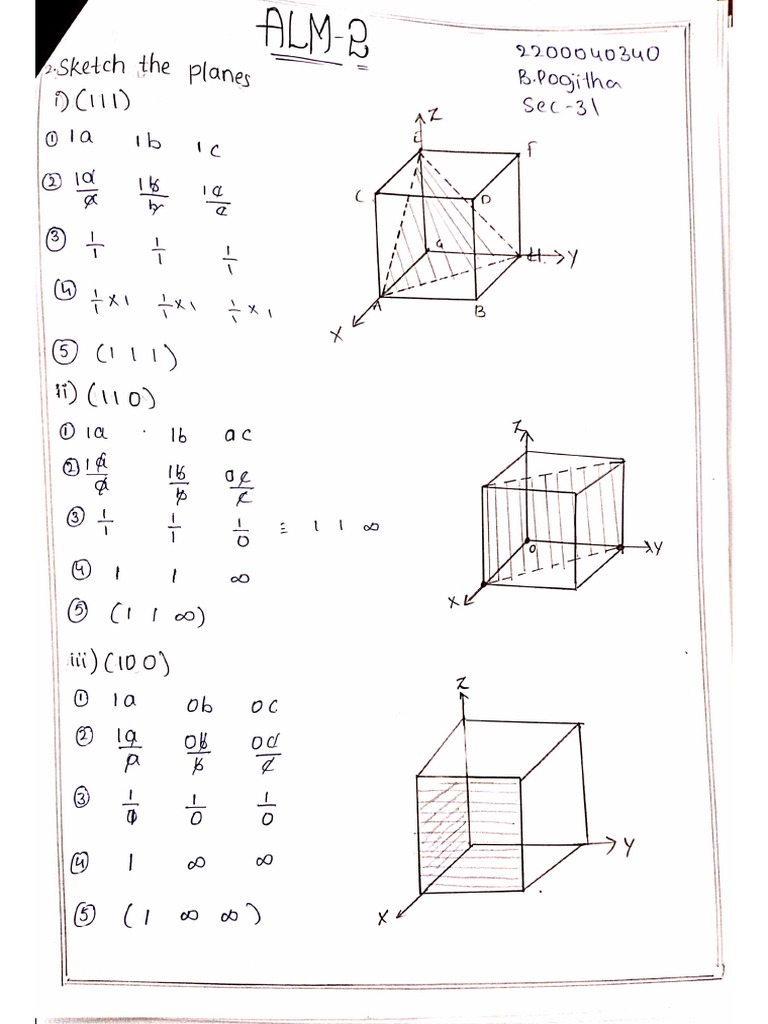 ALM-2
2200040340
B.Poojitha
Sec-31
2.Sketch the planes
i) (111)
① 1a 1b 1c
② 1a/a 1b/b 1c/c
③ 1/1 1/1 1/1
④ 1/1 ×1 1/1 ×1 1/1 ×1
⑤ (1 1 1)
Z
E
F
C
D
G
H
Y
A
B
X
ii) (110)
① 1a 1b ac
② 1a/a 1b/b 0c/c
③ 1/1 1/1 1/0 ≡ 1 1 ∞
④ 1 1 ∞
⑤ (1 1 ∞)
Z
O
Y
X
iii) (100)
① 1a 0b 0c
② 1a/a 0b/b 0c/c
③ 1/1 1/0 1/0
④ 1 ∞ ∞
⑤ (1 ∞ ∞)
Z
Y
X